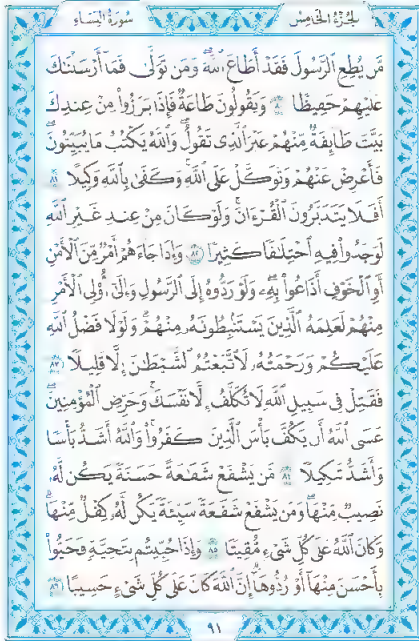 الجزء الخامس
سورة النساء
مَّن يُطِعِ ٱلرَّسُولَ فَقَدۡ أَطَاعَ ٱللَّهَۖ وَمَن تَوَلَّىٰ فَمَآ أَرۡسَلۡنَٰكَ
عَلَيۡهِمۡ حَفِيظٗا ٨٠ وَيَقُولُونَ طَاعَةٞ فَإِذَا بَرَزُواْ مِنۡ عِندِكَ
بَيَّتَ طَآئِفَةٞ مِّنۡهُمۡ غَيۡرَ ٱلَّذِي تَقُولُۖ وَٱللَّهُ يَكۡتُبُ مَا يُبَيِّتُونَۖ
فَأَعۡرِضۡ عَنۡهُمۡ وَتَوَكَّلۡ عَلَى ٱللَّهِۚ وَكَفَىٰ بِٱللَّهِ وَكِيلًا ٨١
أَفَلَا يَتَدَبَّرُونَ ٱلۡقُرۡءَانَۚ وَلَوۡ كَانَ مِنۡ عِندِ غَيۡرِ ٱللَّهِ
لَوَجَدُواْ فِيهِ ٱخۡتِلَٰفٗا كَثِيرٗا ٨٢ وَإِذَا جَآءَهُمۡ أَمۡرٞ مِّنَ ٱلۡأَمۡنِ
أَوِ ٱلۡخَوۡفِ أَذَاعُواْ بِهِۦۖ وَلَوۡ رَدُّوهُ إِلَى ٱلرَّسُولِ وَإِلَىٰٓ أُوْلِي ٱلۡأَمۡرِ
مِنۡهُمۡ لَعَلِمَهُ ٱلَّذِينَ يَسۡتَنۢبِطُونَهُۥ مِنۡهُمۡۗ وَلَوۡلَا فَضۡلُ ٱللَّهِ
عَلَيۡكُمۡ وَرَحۡمَتُهُۥ لَٱتَّبَعۡتُمُ ٱلشَّيۡطَٰنَ إِلَّا قَلِيلٗا ٨٣
فَقَٰتِلۡ فِي سَبِيلِ ٱللَّهِ لَا تُكَلَّفُ إِلَّا نَفۡسَكَۚ وَحَرِّضِ ٱلۡمُؤۡمِنِينَۖ
عَسَى ٱللَّهُ أَن يَكُفَّ بَأۡسَ ٱلَّذِينَ كَفَرُواْۚ وَٱللَّهُ أَشَدُّ بَأۡسٗا
وَأَشَدُّ تَنكِيلٗا ٨٤ مَّن يَشۡفَعۡ شَفَٰعَةً حَسَنَةٗ يَكُن لَّهُۥ
نَصِيبٞ مِّنۡهَاۖ وَمَن يَشۡفَعۡ شَفَٰعَةٗ سَيِّئَةٗ يَكُن لَّهُۥ كِفۡلٞ مِّنۡهَاۗ
وَكَانَ ٱللَّهُ عَلَىٰ كُلِّ شَيۡءٖ مُّقِيتٗا ٨٥ وَإِذَا حُيِّيتُم بِتَحِيَّةٖ فَحَيُّواْ
بِأَحۡسَنَ مِنۡهَآ أَوۡ رُدُّوهَآۗ إِنَّ ٱللَّهَ كَانَ عَلَىٰ كُلِّ شَيۡءٍ حَسِيبًا ٨٦
٩١